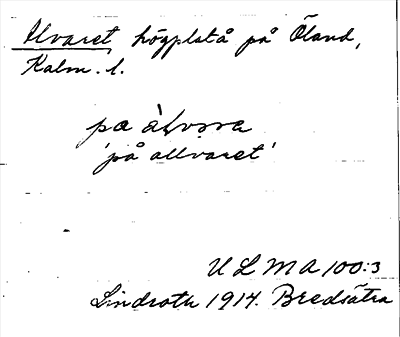 Alvaret, högplatå på Öland,
Kalm. l.
pa àlvɔra
'på allvaret'
ULMA 100:3
Lindroth 1914. Bredsätra